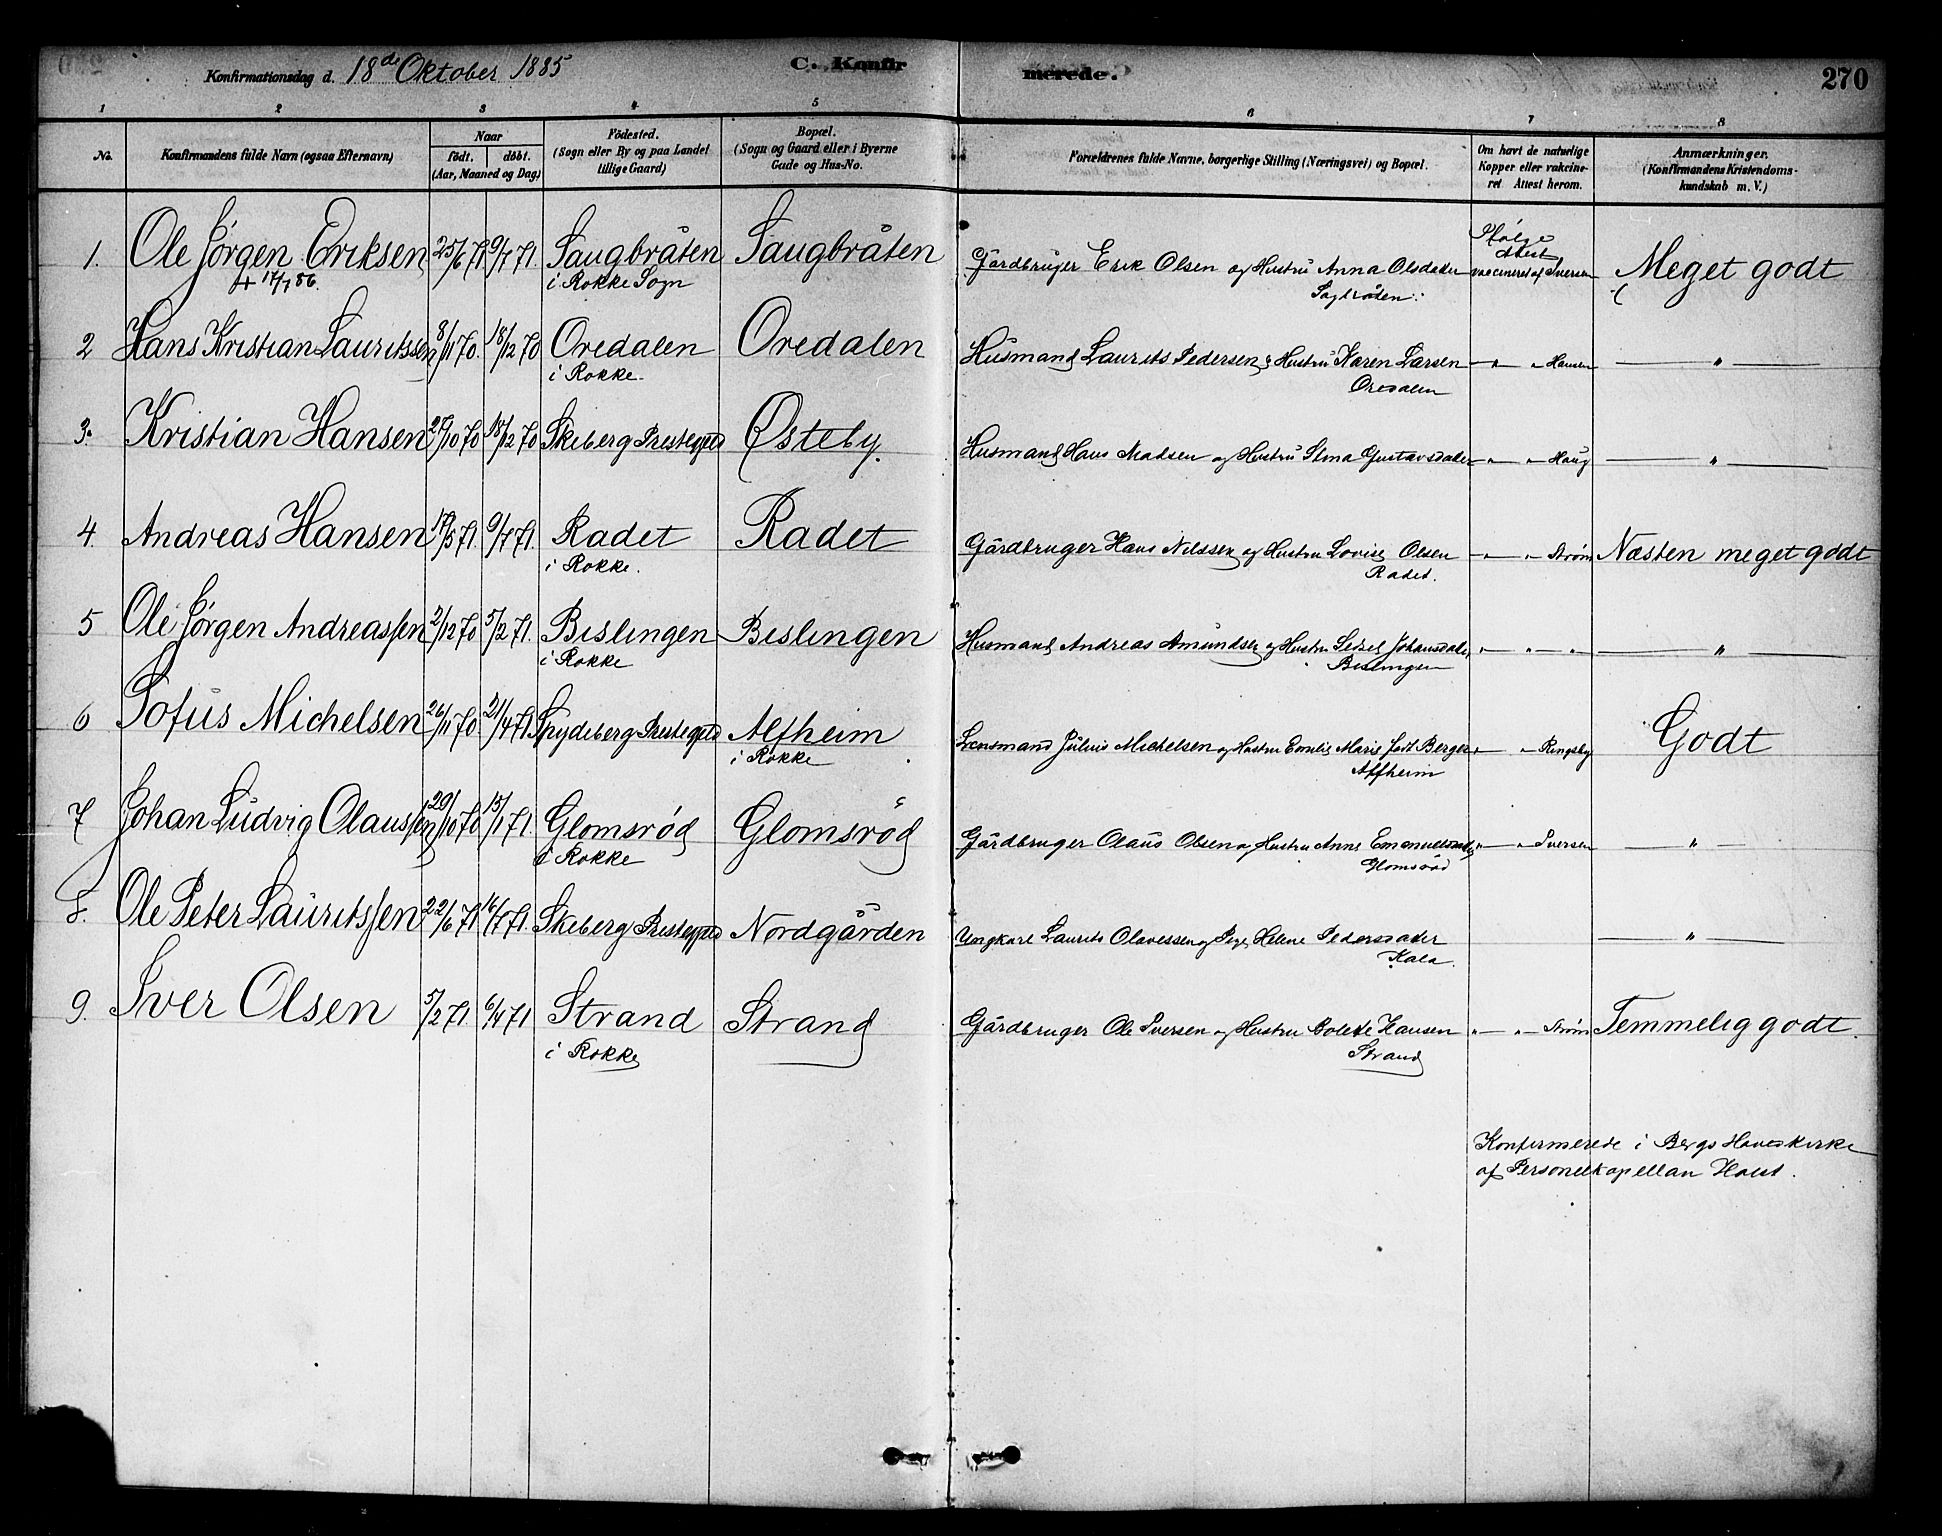 Konfirmationsdag d. 18de Oktober 1885 C. Konfirmerede. 270
1 2 3 4 5 6 7 8
No. Konfirmandens fulde Navn (ogsaa Efternavn) Naar födt. döbt. (Aar, Maaned og Dag) Födested. (Sogn eller By og paa Landet tillige Gaard) Bopæl. (Sogn og Gaard eller i Byerne Gade og Hus-No. Forældrenes fulde Navne, borgerlige Stilling (Næringsvei) og Bopæl. Om havt de naturlige Kopper eller vakcineret Attest herom. Anmærkninger. (Konfirmandens Kristendomskundskab m. V.)
1. Ole Jørgen Eriksen 25/6 71 9/7 71. Saugbråten Saugbråten Gårdbruger Erik Olsen og Hustru Anna Olsdatter Ifølge Attest vaccineret af Iversen Meget godt
i Rokke Sogn
2 Hans Kristian Lauritssen 8/11 70. 18/12 70 Oredalen Oredalen Husmand Laurits Pedersen & Hustru Karen Larsen " — " Hansen — " —
i Rokke. Oredalen
3. Kristian Hansen 27/10 70 18/12 70 Skeberg Prestegjeld Østeby. Husmand Hans Madsen og Hustru Stina Gustavsdatter " — " — Haug — " —
4. Andreas Hansen 17/5 71. 9/7 71. Radet Radet Gårdbruger Hans Nilssen og Hustru Lovise Olsen " — " Strøm Næsten meget godt
i Rokke. Radet.
5 Ole Jørgen Andreassen 2/12 70 5/2 71. Bislingen Bislingen Husmand Andreas Amundsen og Hustru Johansdatter " — " — " — " —
i Rokke Bislingen
6 Sofus Michelsen 26/11 70. 21/4 71. Spydeberg Prestegjeld Alfheim Lensmand Julius Michelsen og Hustru Emilie Marie født Berger " — " Ringsby Godt
i Rokke Alfheim
7 Johan Ludvig Olaussen 29/10 70 15/1 71. Glomsrød Glomsrød Gårdbruger Olaus Olsen og Hustru Anne Emanuelsdatter " — " Iversen — " —
i Rokke Glomsrød
8. Ole Peter Lauritssen 22/6 71 16/7 71. Skeberg Prestegjeld Nordgården Ungkarl Laurits Olavessen og Pige Helene Pedersdatter — " —
9. Iver Olsen 5/2 71. 6/4 71 Strand Strand Gårdbruger Ole Iversen og Hustru Bolette Hansen " — " Strøm Temmelig godt.
i Rokke Strand
Konfirmerede i Bergs Hoveskirke
af Personelkapellan Holst.